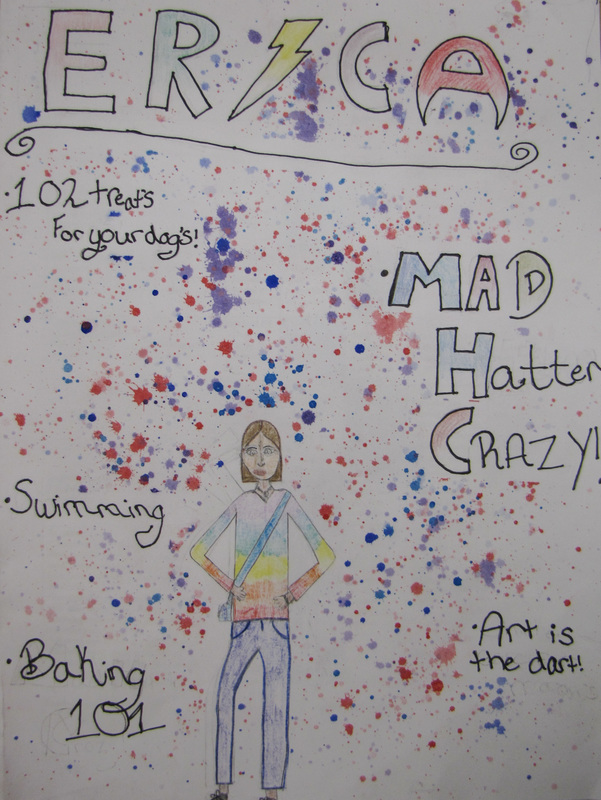 ERICA
·102 treats
For your dog's!
·MAD
Hatter
CRAZY!
·Swimming
·Art is
the dart!
·Baking
101